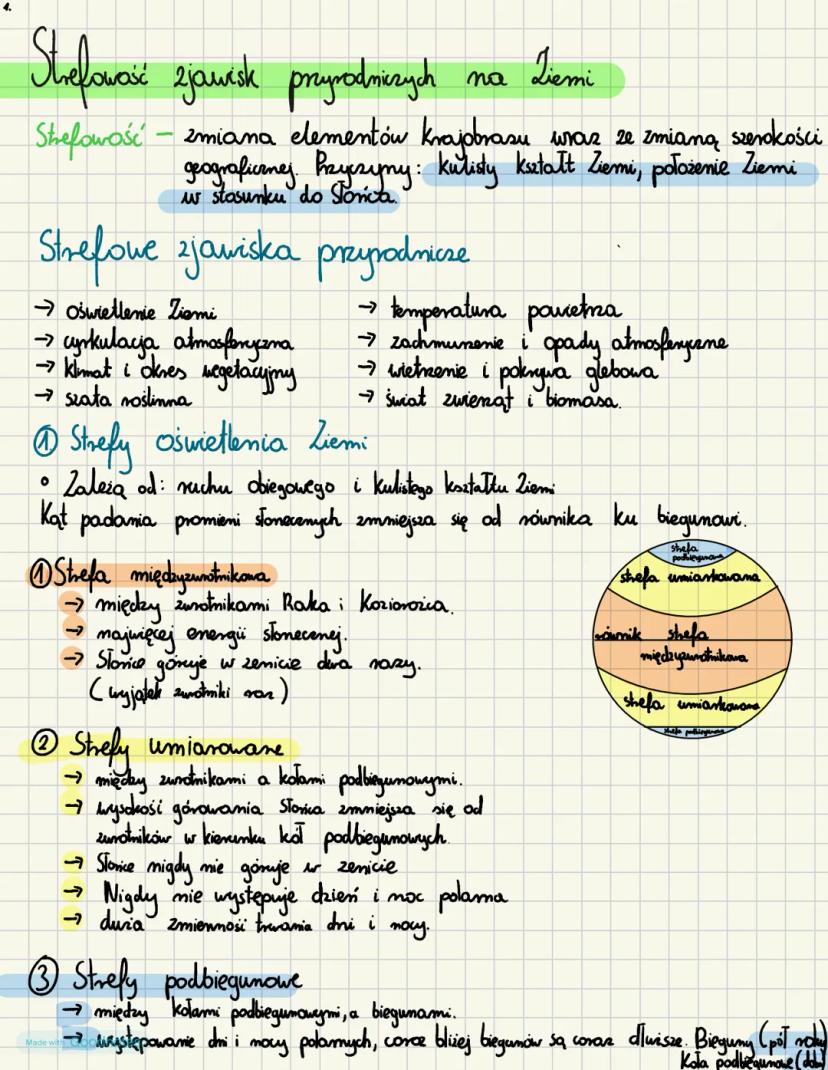 1.
Strefowość zjawisk przyrodniczych na Ziemi
Strefowość - zmiana elementów krajobrazu wraz ze zmianą szerokości
geograficznej. Przyczyny: kulisty kształt Ziemi, położenie Ziemi
w stosunku do Słońca.
Strefowe zjawiska przyrodnicze
→ oświetlenie Ziemi
→ cyrkulacja atmosferyczna
→ klimat i okres wegetacyjny
→ szata roślinna
→ temperatura powietrza
→ zachmurzenie i opady atmosferyczne
→ wietrzenie i pokrywa glebowa
→ świat zwierząt i biomasa.
① Strefy oświetlenia Ziemi
• Zależą od: ruchu obiegowego i kulistego kształtu Ziemi
Kąt padania promieni słonecznych zmniejsza się od równika ku biegunowi.
① Strefa międzyzwrotnikowa
→ między zwrotnikami Raka i Koziorożca.
→ najwięcej energii słonecznej.
→ Słońce góruje w zenicie dwa razy.
(wyjątek zwrotniki raz)
strefa
podbiegunowa
strefa umiarkowana
równik strefa
międzyzwrotnikowa
strefa umiarkowana
strefa podbiegunowa
② Strefy umiarowane
→ między zwrotnikami a kołami podbiegunowymi.
→ wysokość górowania Słońca zmniejsza się od
zwrotników w kierunku kół podbiegunowych.
→ Słońce nigdy nie góruje w zenicie
→ Nigdy nie występuje dzień i noc polarna
→ duża zmienność trwania dni i nocy.
③ Strefy podbiegunowe
→ między kołami podbiegunowymi, a biegunami.
→ występowanie dni i nocy polarnych, coraz bliżej biegunów są coraz dłuższe. Bieguny (pół roku)
Koła podbiegunowe (doba)
Made with